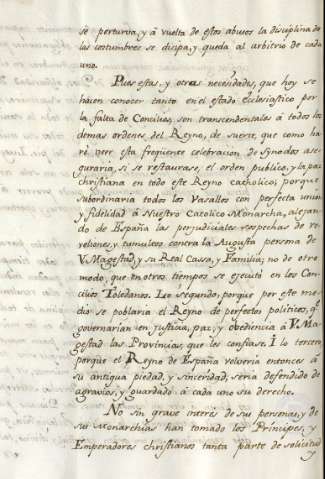 se perturva, y à vuelta de estos abusos la disciplina de
las costumbres se disipa, y queda al arbitrio de cada
uno.
Pues estas, y otras necesidades, que hoy se
hacen conocer tanto en el estado Eclesiastico por
la falta de Concilios, son transcendentales à todos los
demas ordenes del Reyno, de suerte, que como ha
rè vere esta freqüente celebracion de Synodos ase
guraria, si se restaurase, el orden publico, y la paz
christiana en todo este Reyno catholico; porque
subordinaria todos los Vasallos con perfecta union
y fidelidad à Nuestro Catolico Monarcha, alejan
do de España las perjudiciales sospechas de re
veliones, y tumultos contra la Augusta persona de
V. Magestad, y su Real Cassa, y Familia; no de otro
modo, que en otros tiempos se ejecutò en los Con
cilios Toledanos. Lo segundo, porque por este me
dio se poblaria el Reyno de perfectos politicos, qe
governarian en justicia, paz, y obediencia à V. Ma
gestad las Provincias, que les confiase. I lo tercero
porque el Reyno de España volveria entonces à
su antigua piedad, y sinceridad, seria defendido de
agravios, y guardado à cada uno su derecho.
No sin grave interès de sus personas, y de
sus Monarchias han tomado los Principes, y
Emperadores christianos tanta parte de solicitud